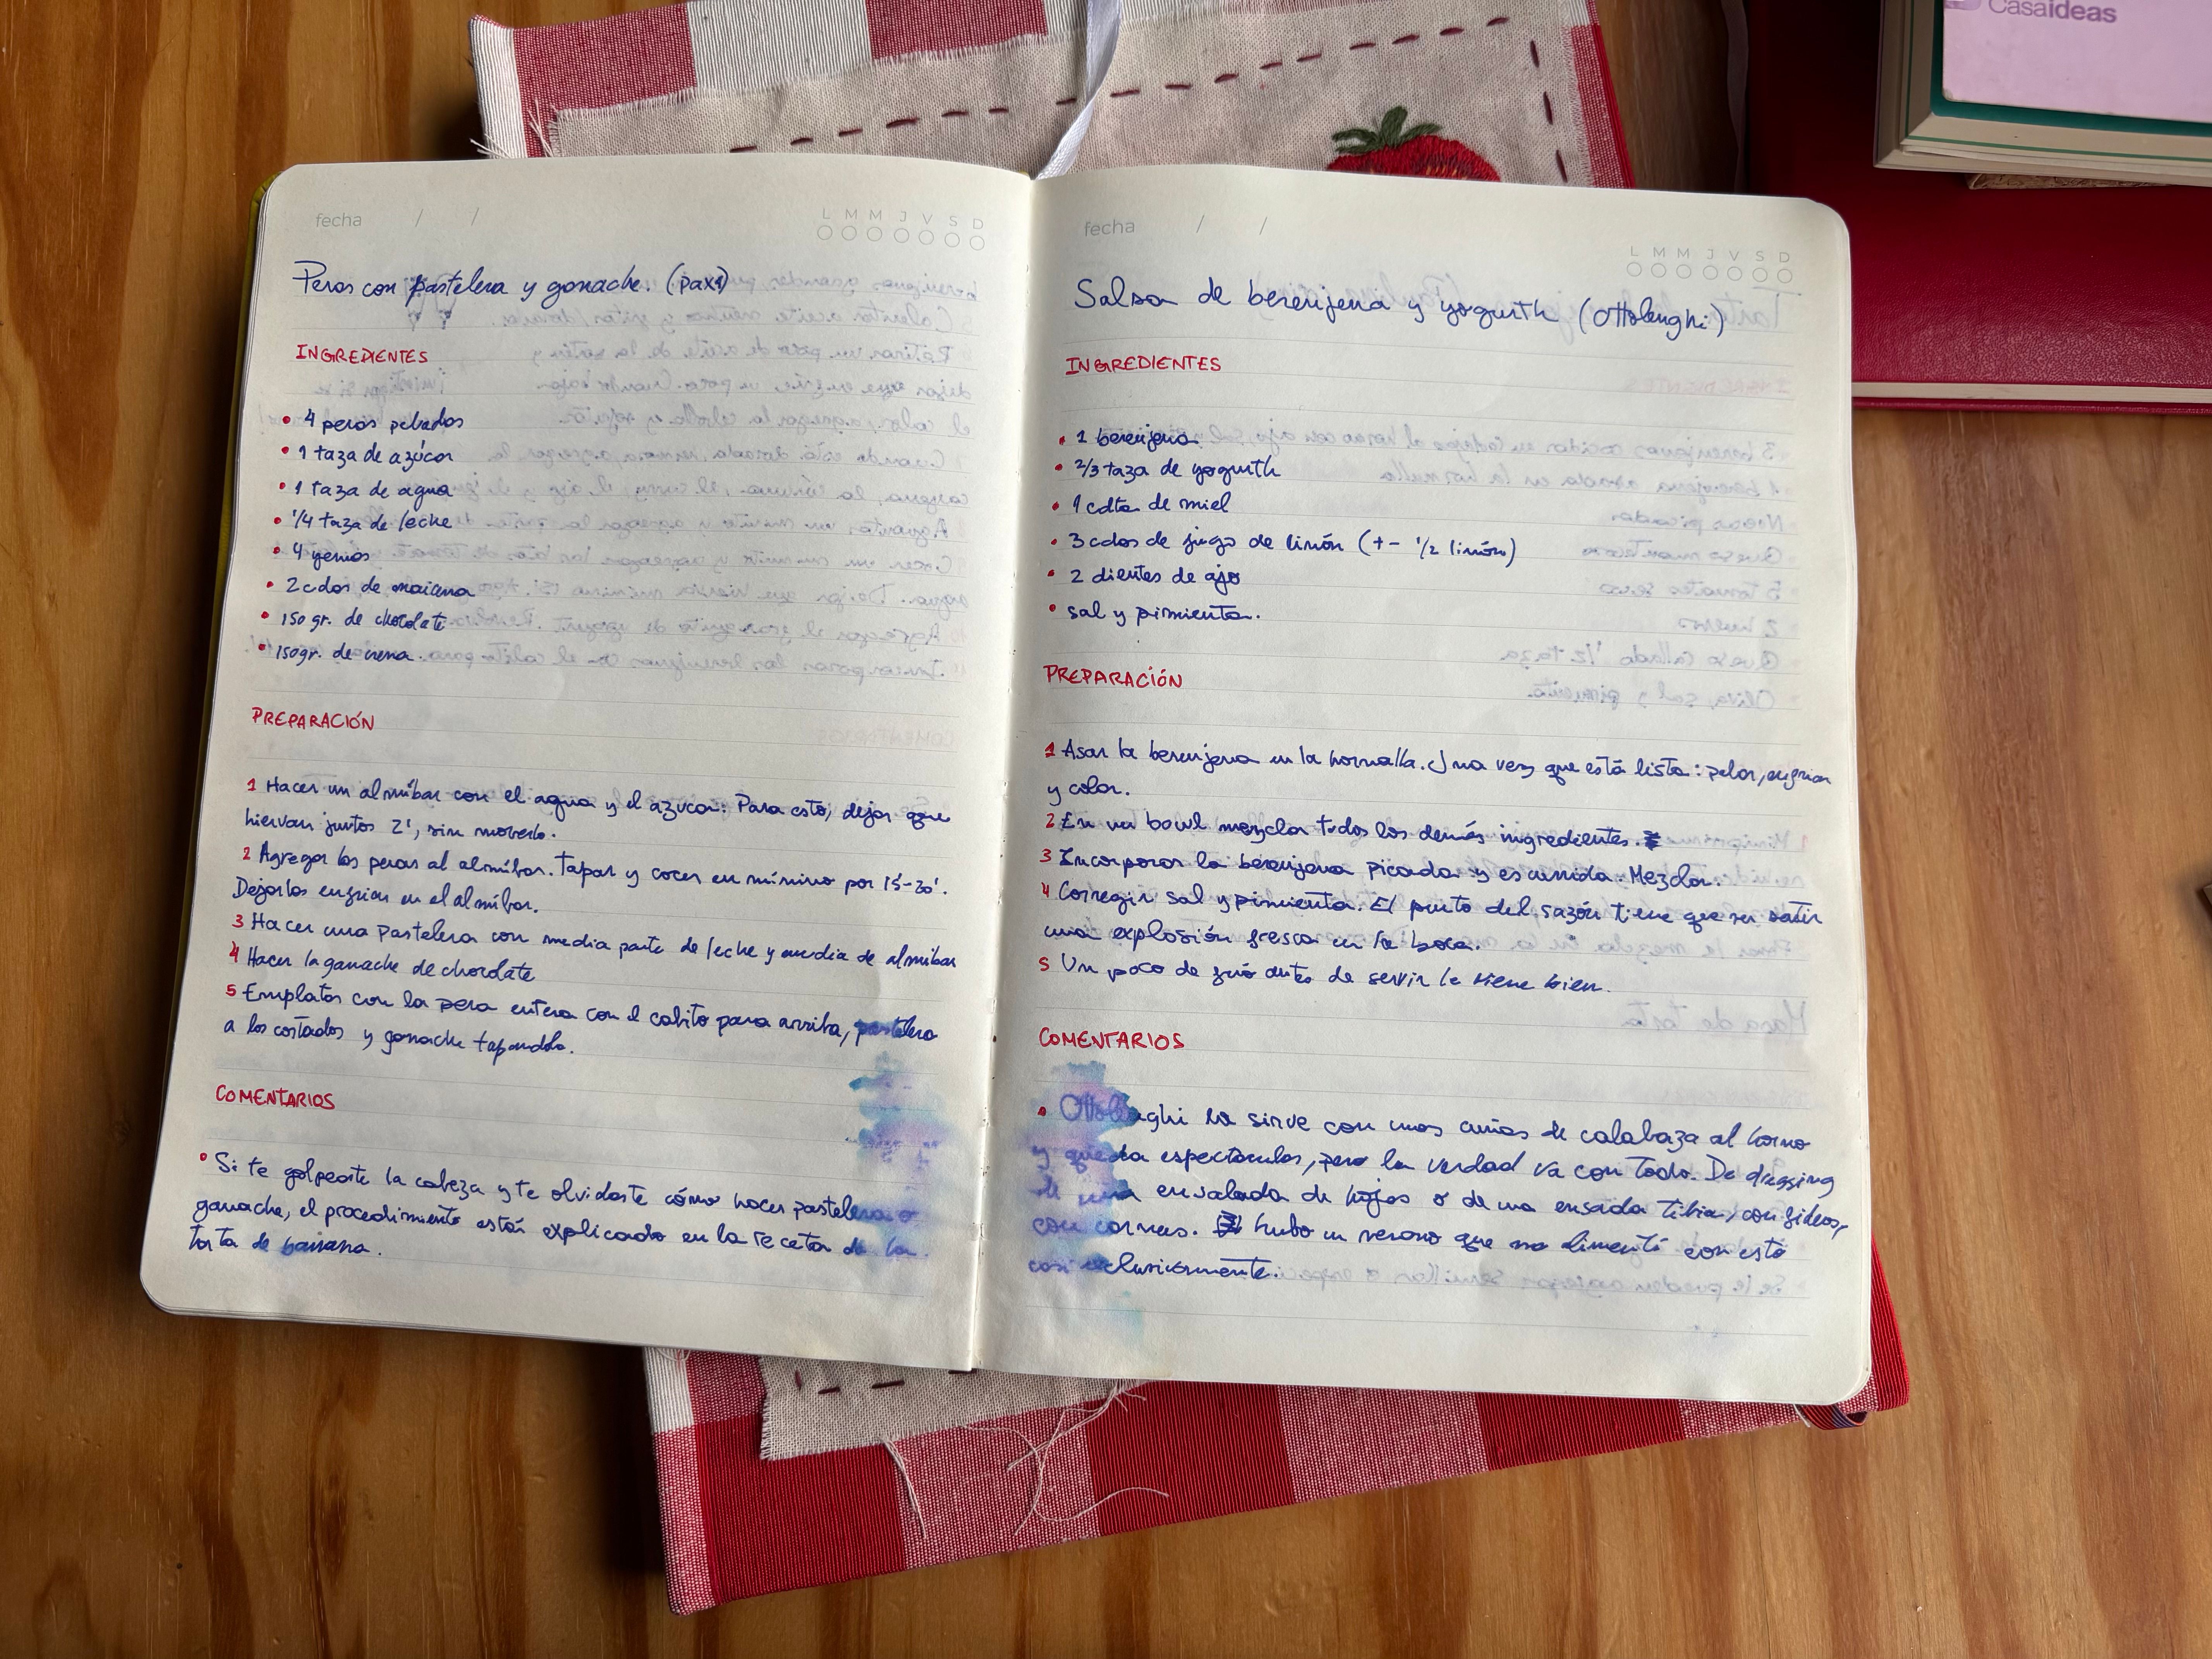 Casaideas
fecha / /
L M M J V S D
Peras con pastelera y ganache. (pax4)
INGREDIENTES
• 4 peras peladas
• 1 taza de azúcar
• 1 taza de agua
• 1/4 taza de leche
• 4 yemas
• 2 cdas de maicena
• 150 gr. de chocolate
• 150 gr. de crema.
PREPARACIÓN
1 Hacer un almíbar con el agua y el azúcar: Para esto, dejar que
hiervan juntos 2', sin moverlo.
2 Agregar las peras al almíbar. Tapar y cocer en mínimo por 15'-20'.
Dejarlas enfriar en el almíbar.
3 Hacer una pastelera con media parte de leche y media de almíbar
4 Hacer la ganache de chocolate
5 Emplatar con la pera entera con el cabito para arriba, pastelera
a los costados y ganache tapandola.
COMENTARIOS
• Si te golpeaste la cabeza y te olvidaste cómo hacer pastelera o
ganache, el procedimiento están explicado en la receta de la
torta de banana.
fecha / /
L M M J V S D
Salsa de berenjena y yogurth (Ottolenghi)
INGREDIENTES
• 1 berenjena
• 2/3 taza de yogurth
• 1 cdta de miel
• 3 cdas de jugo de limón (+- 1/2 limón)
• 2 dientes de ajo
• sal y pimienta.
PREPARACIÓN
1 Asar la berenjena en la hornalla. Una vez que está lista: pelar, enfriar
y colar.
2 En un bowl mezclar todos los demás ingredientes.
3 Incorporar la berenjena picada y escurrida. Mezclar.
4 Corregir sal y pimienta. El punto del sazón tiene que ser sentir
una explosión fresca en la boca.
5 Un poco de frío antes de servir le viene bien.
COMENTARIOS
• Ottolenghi la sirve con unas cuñas de calabaza al horno
y queda espectacular, pero la verdad va con todo. De dressing
de una ensalada de hojas o de una ensada tibia, con fideos,
con carnes. Hubo un verano que me alimenté con esto
casi exclusivamente.